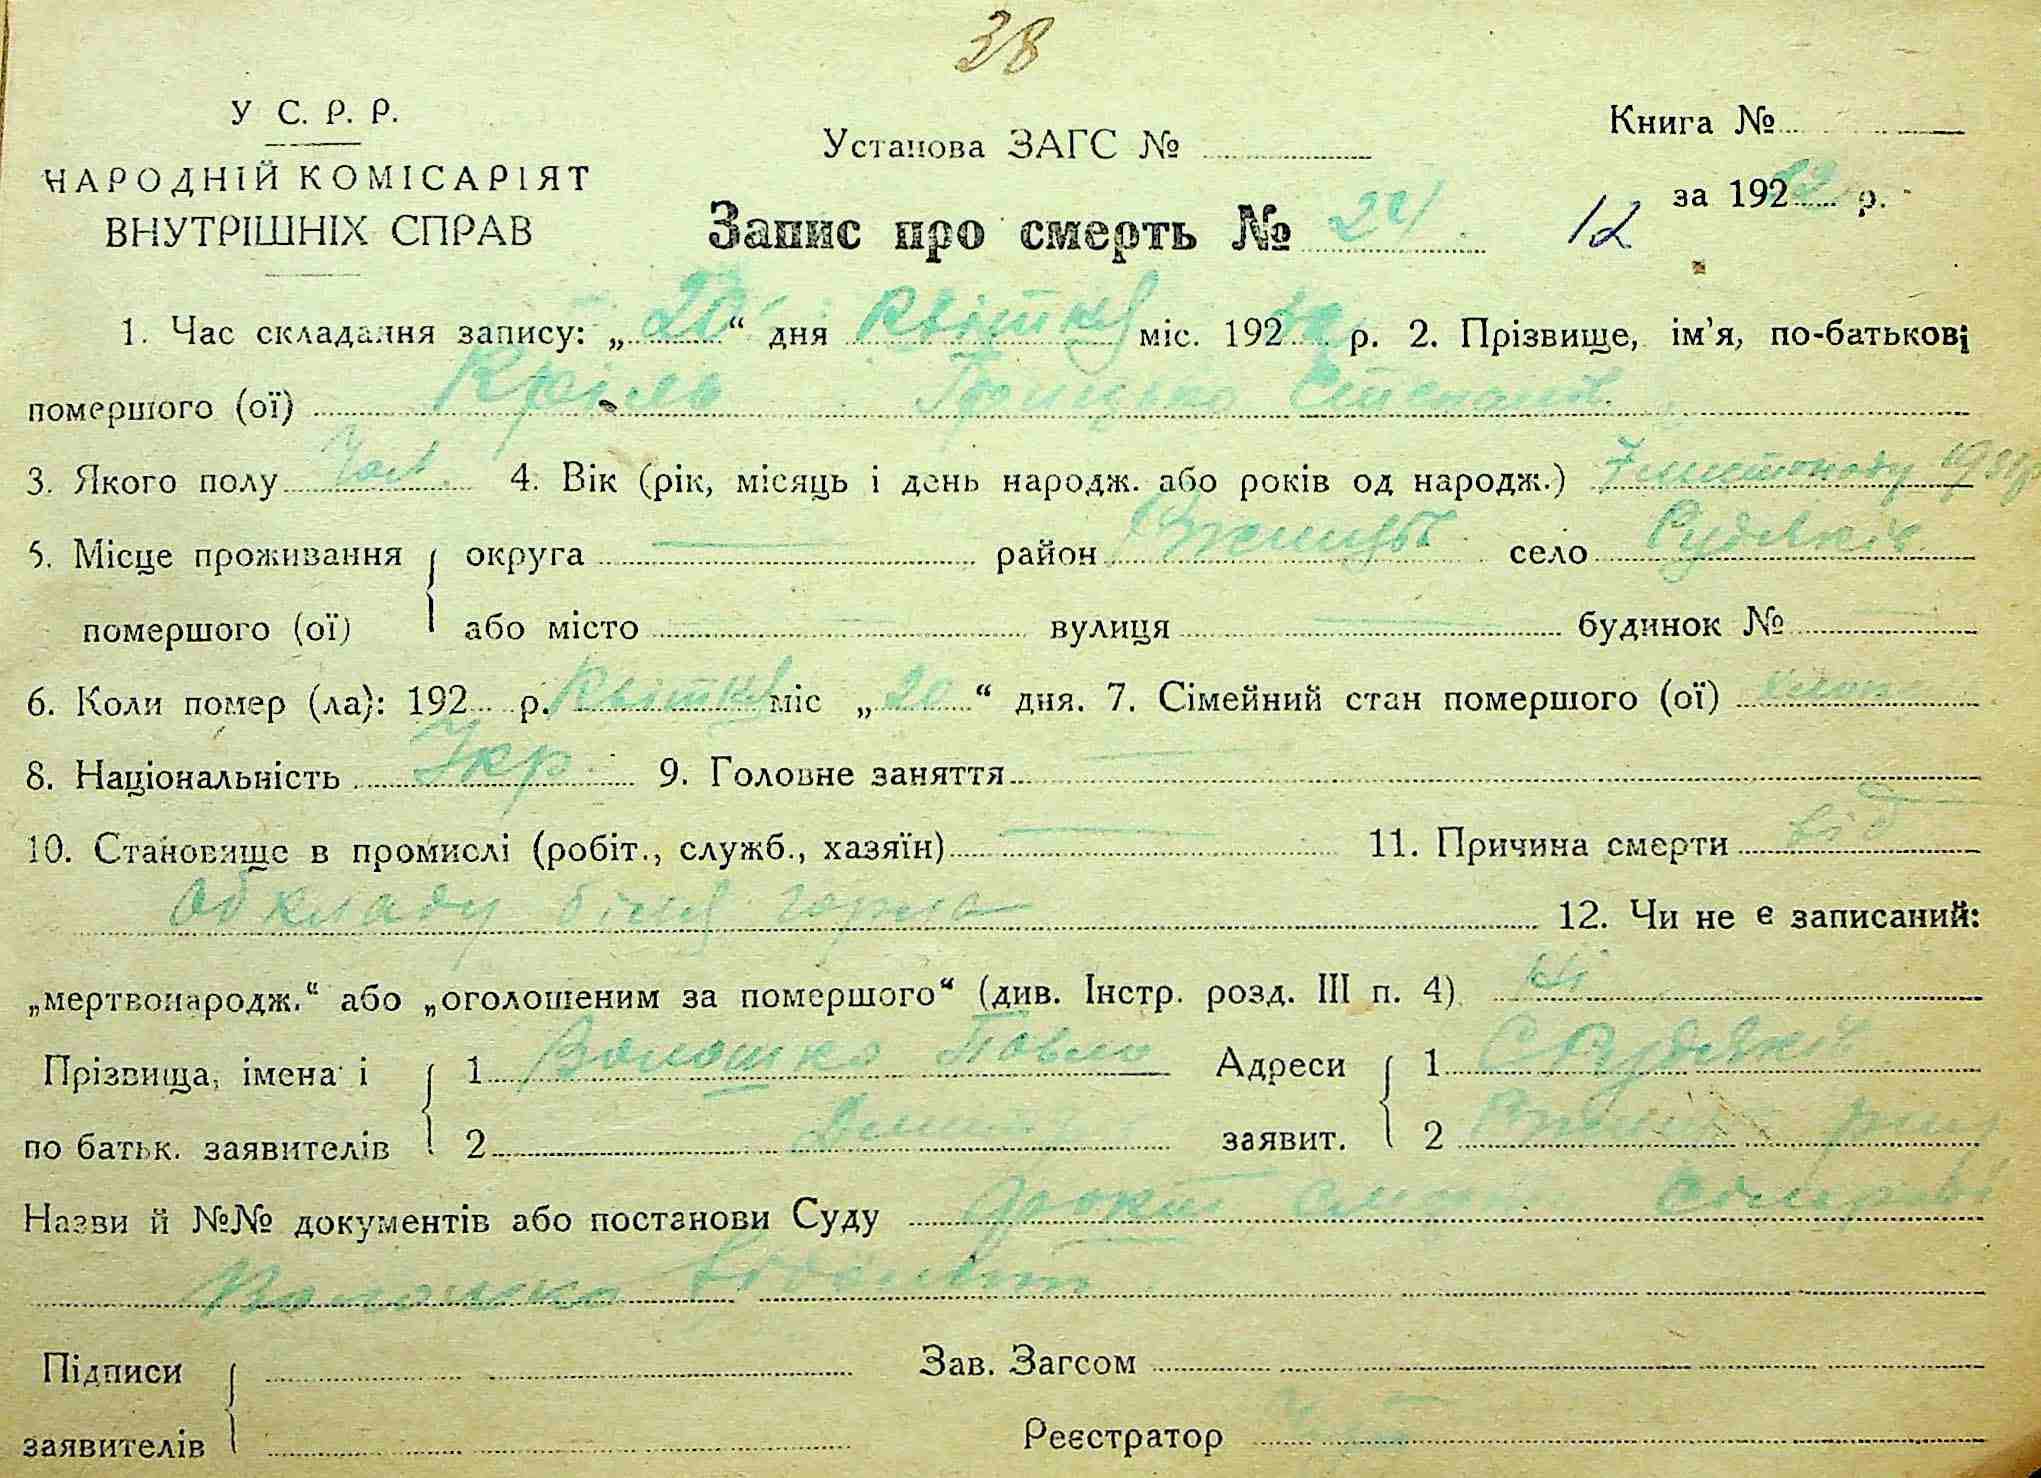 38
У С. Р. Р.
НАРОДНІЙ КОМІСАРІЯТ
ВНУТРІШНІХ СПРАВ
Установа ЗАГС №
Книга №
за 192 р.
Запис про смерть № 24
12
1. Час складання запису: „20“ дня Квітня міс. 192 р. 2. Прізвище, ім'я, по-батькові
помершого (ої) Кріль Грицько Степанов.
3. Якого полу Чол. 4. Вік (рік, місяць і день народж. або років од народж.) 7 листопаду
5. Місце проживання помершого (ої) округа — район село Рудяків
або місто — вулиця — будинок №
6. Коли помер (ла): 192 р. Квітня міс „20“ дня. 7. Сімейний стан помершого (ої)
8. Національність Укр. 9. Головне заняття —
10. Становище в промислі (робіт., служб., хазяїн) — 11. Причина смерти від
обкладу біля горла 12. Чи не є записаний:
„мертвонародж.“ або „оголошеним за помершого“ (див. Інстр. розд. III п. 4) ні
Прізвища, імена і по батьк. заявителів 1 Волошко Павло Адреси заявит. 1 С Рудяків
2 2
Назви й №№ документів або постанови Суду
Волошко
Підписи заявителів
Зав. Загсом
Реєстратор